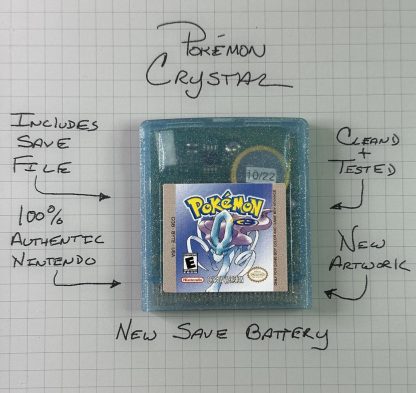 Pokémon
Crystal
Includes
Save
File
Cleand
+
Tested
10/22
POKéMON
100%
Authentic
Nintendo
New
Artwork
E
Nintendo
New Save Battery